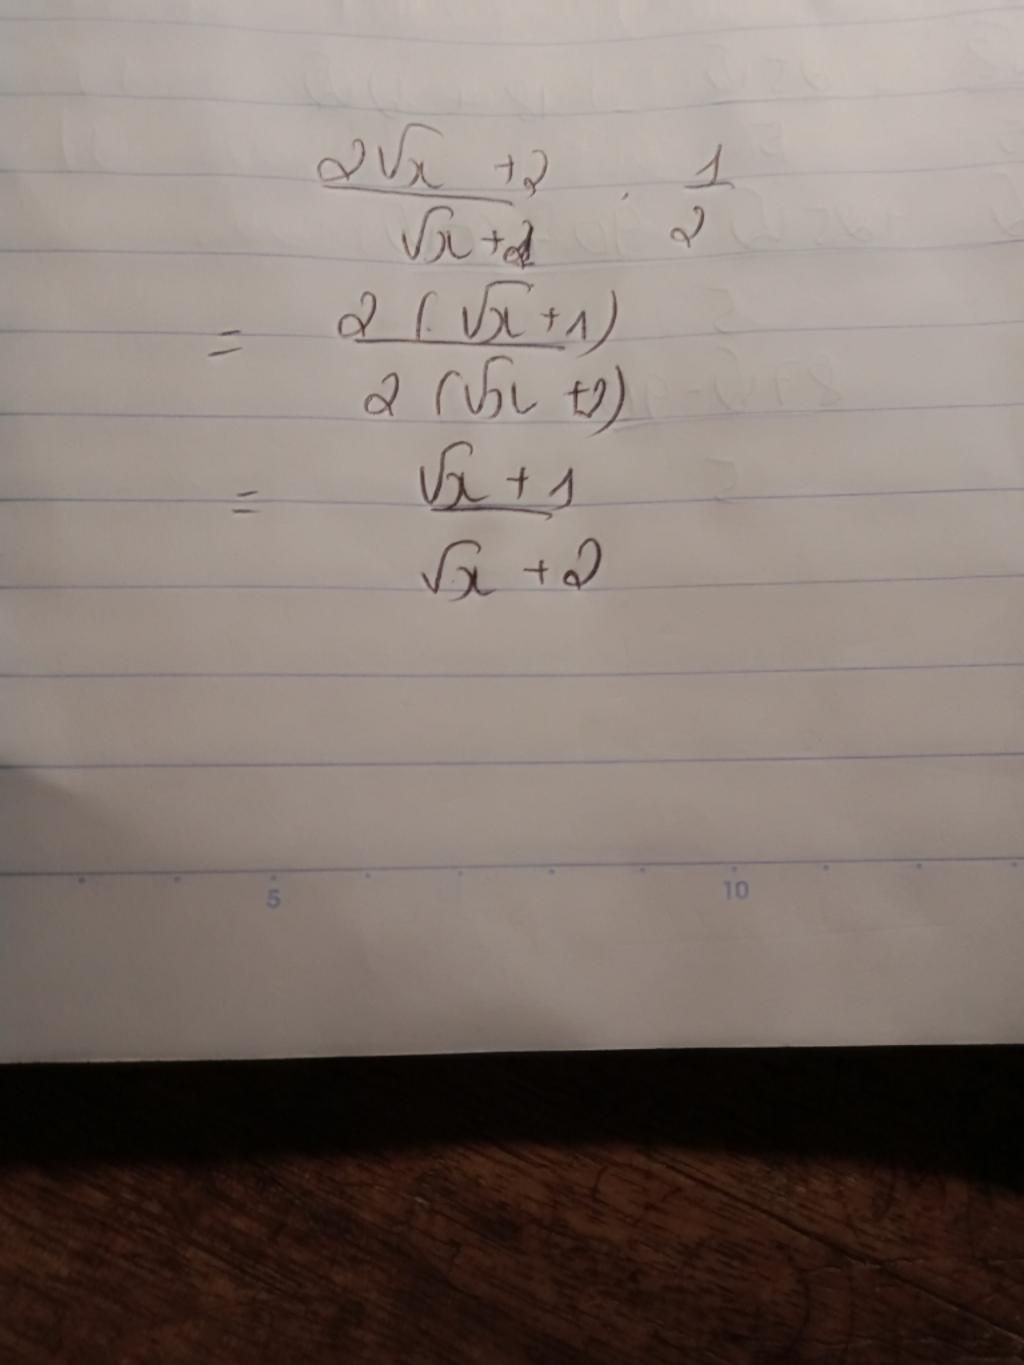 2√x + 2 / √x + 2 . 1 / 2
= 2 (√x + 1) / 2 (√x + 2)
= √x + 1 / √x + 2
5 10